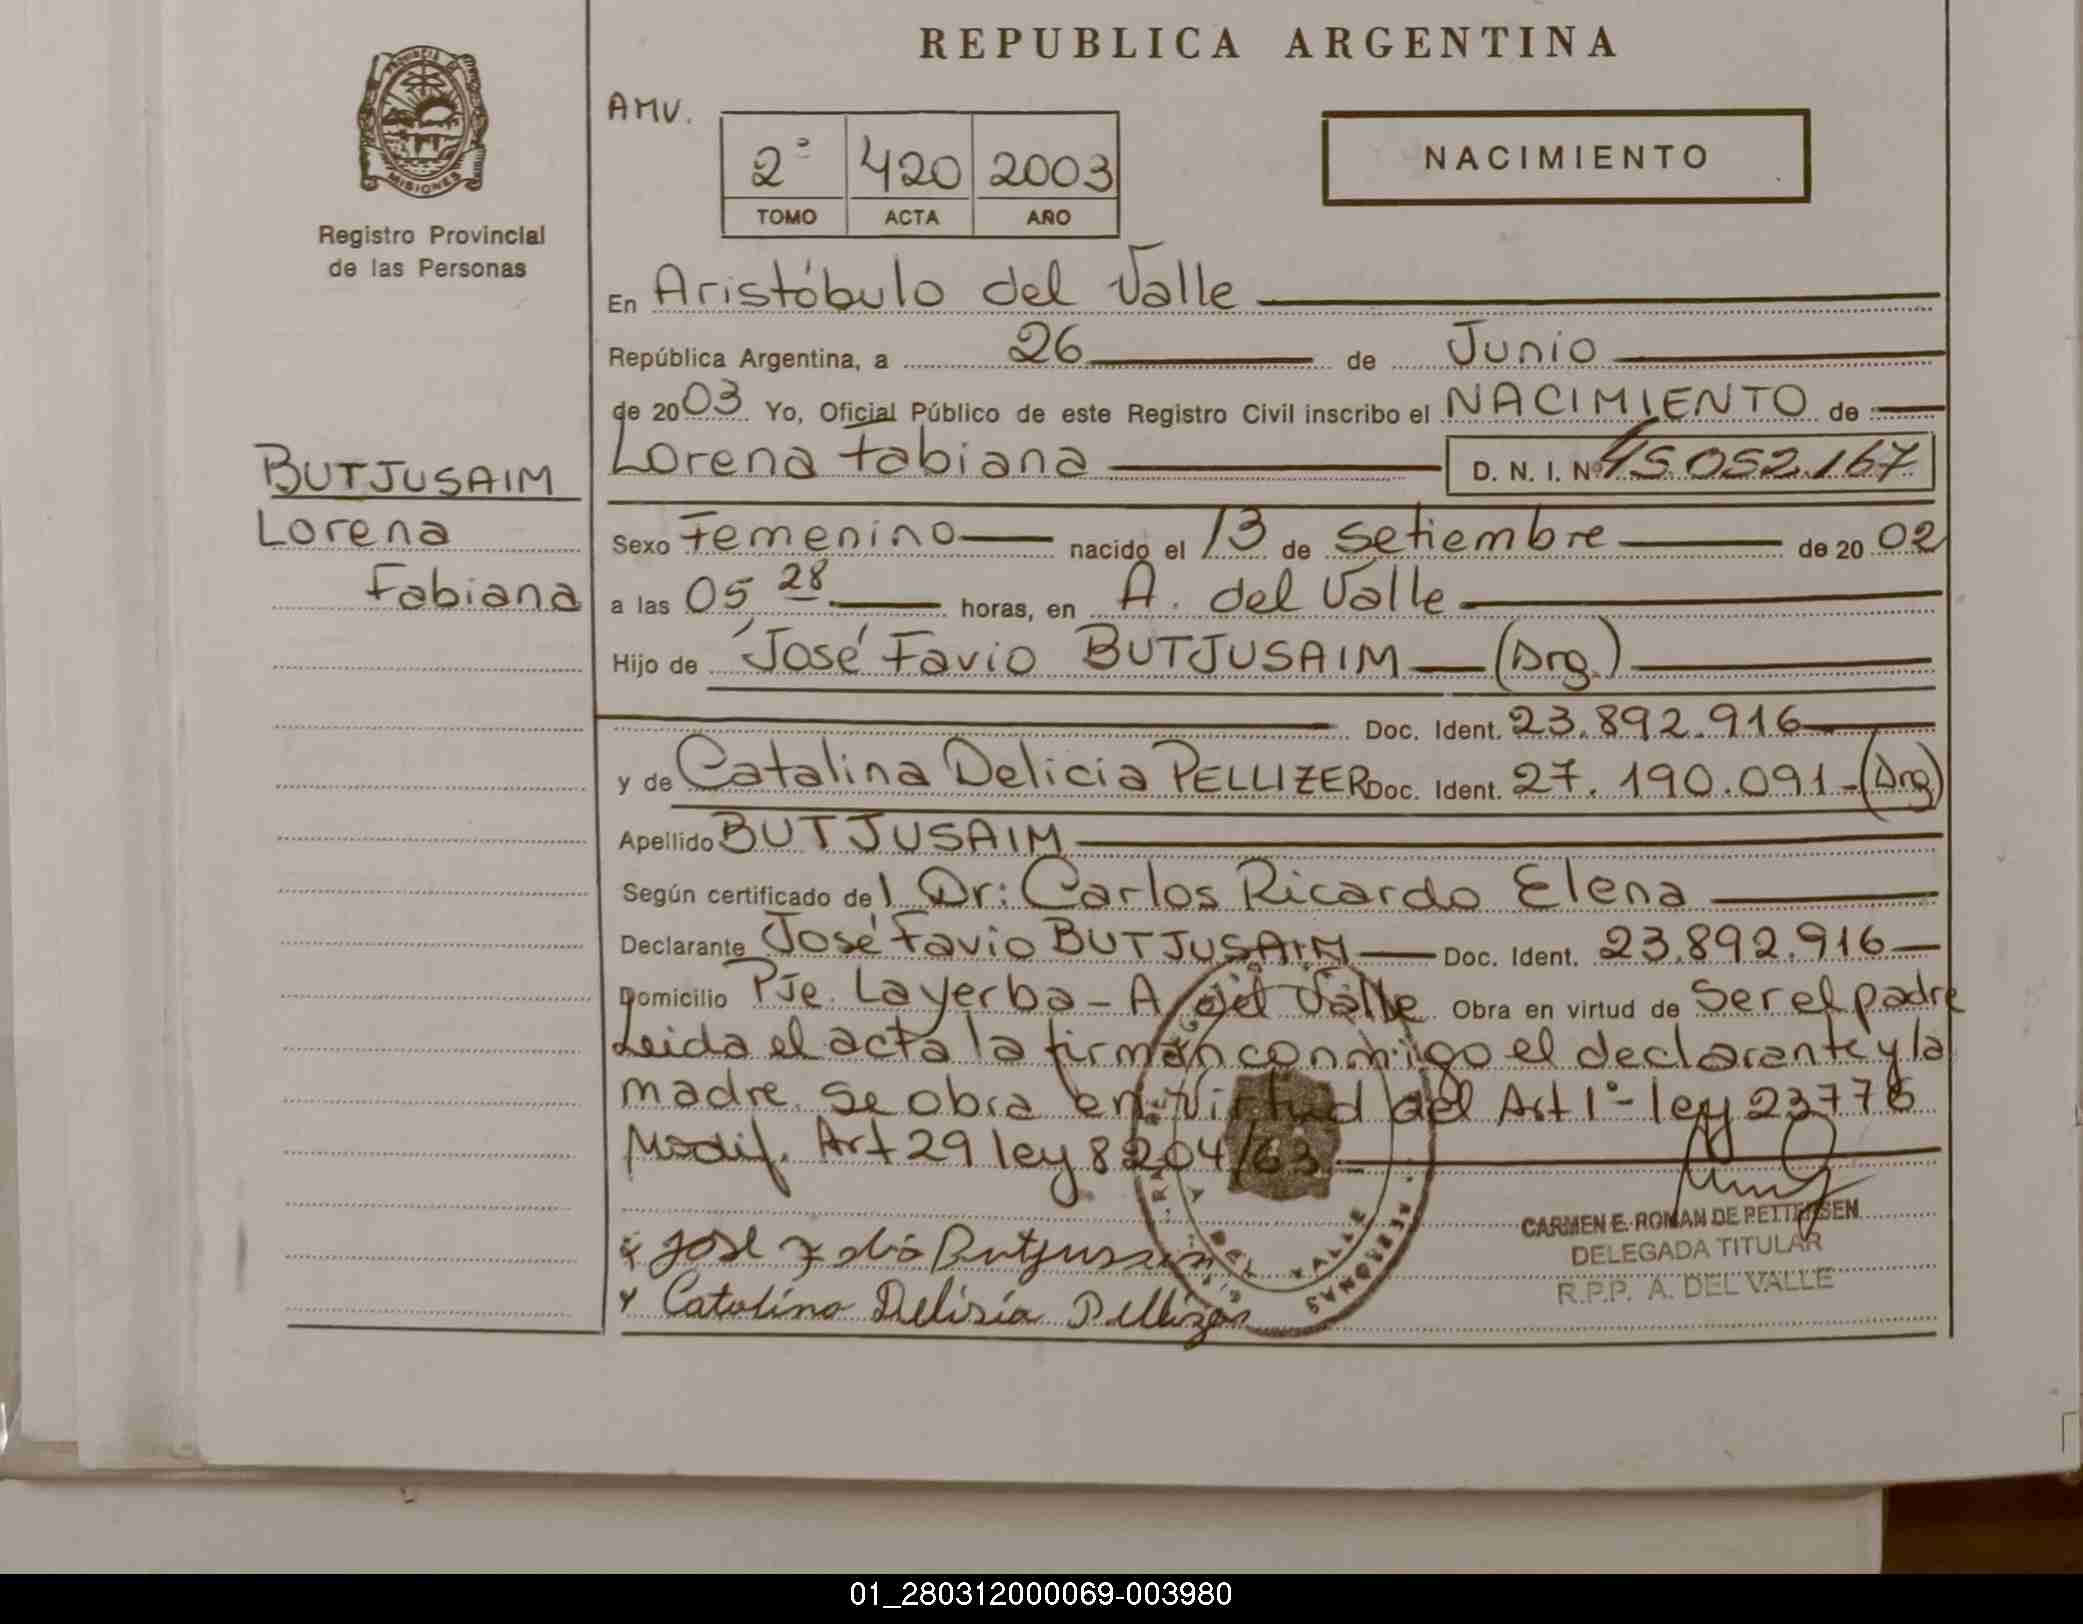 REPUBLICA ARGENTINA
PROVINCIA DE
MISIONES
Registro Provincial
de las Personas
AMV.
NACIMIENTO
2º 420 2003
TOMO ACTA AÑO
En Aristóbulo del Valle
República Argentina, a 26 de Junio
de 2003 Yo, Oficial Público de este Registro Civil inscribo el NACIMIENTO de
Lorena Fabiana D. N. I. Nº 45.052.167
BUTJUSAIM
Lorena
Fabiana
Sexo Femenino nacido el 13 de setiembre de 2002
a las 05,28 horas, en A. del Valle
Hijo de "José" Favio BUTJUSAIM (Arg.)
Doc. Ident. 23.892.916
y de Catalina Delicia PELLIZER Doc. Ident. 27.190.091 - (Arg)
Apellido BUTJUSAIM
Según certificado del Dr: Carlos Ricardo Elena
Declarante José Favio BUTJUSAIM Doc. Ident. 23.892.916
Domicilio Pje. La yerba - A. del Valle Obra en virtud de Ser el padre
Leida el acta la firman conmigo el declarante y la
madre. Se obra en virtud del Art 1º - ley 23776
Modif. Art 29 ley 8204/63.
CARMEN E. ROMAN DE PETTERSEN
DELEGADA TITULAR
R.P.P. A. DEL VALLE
Catalina Delisia Pellizer
01_280312000069-003980